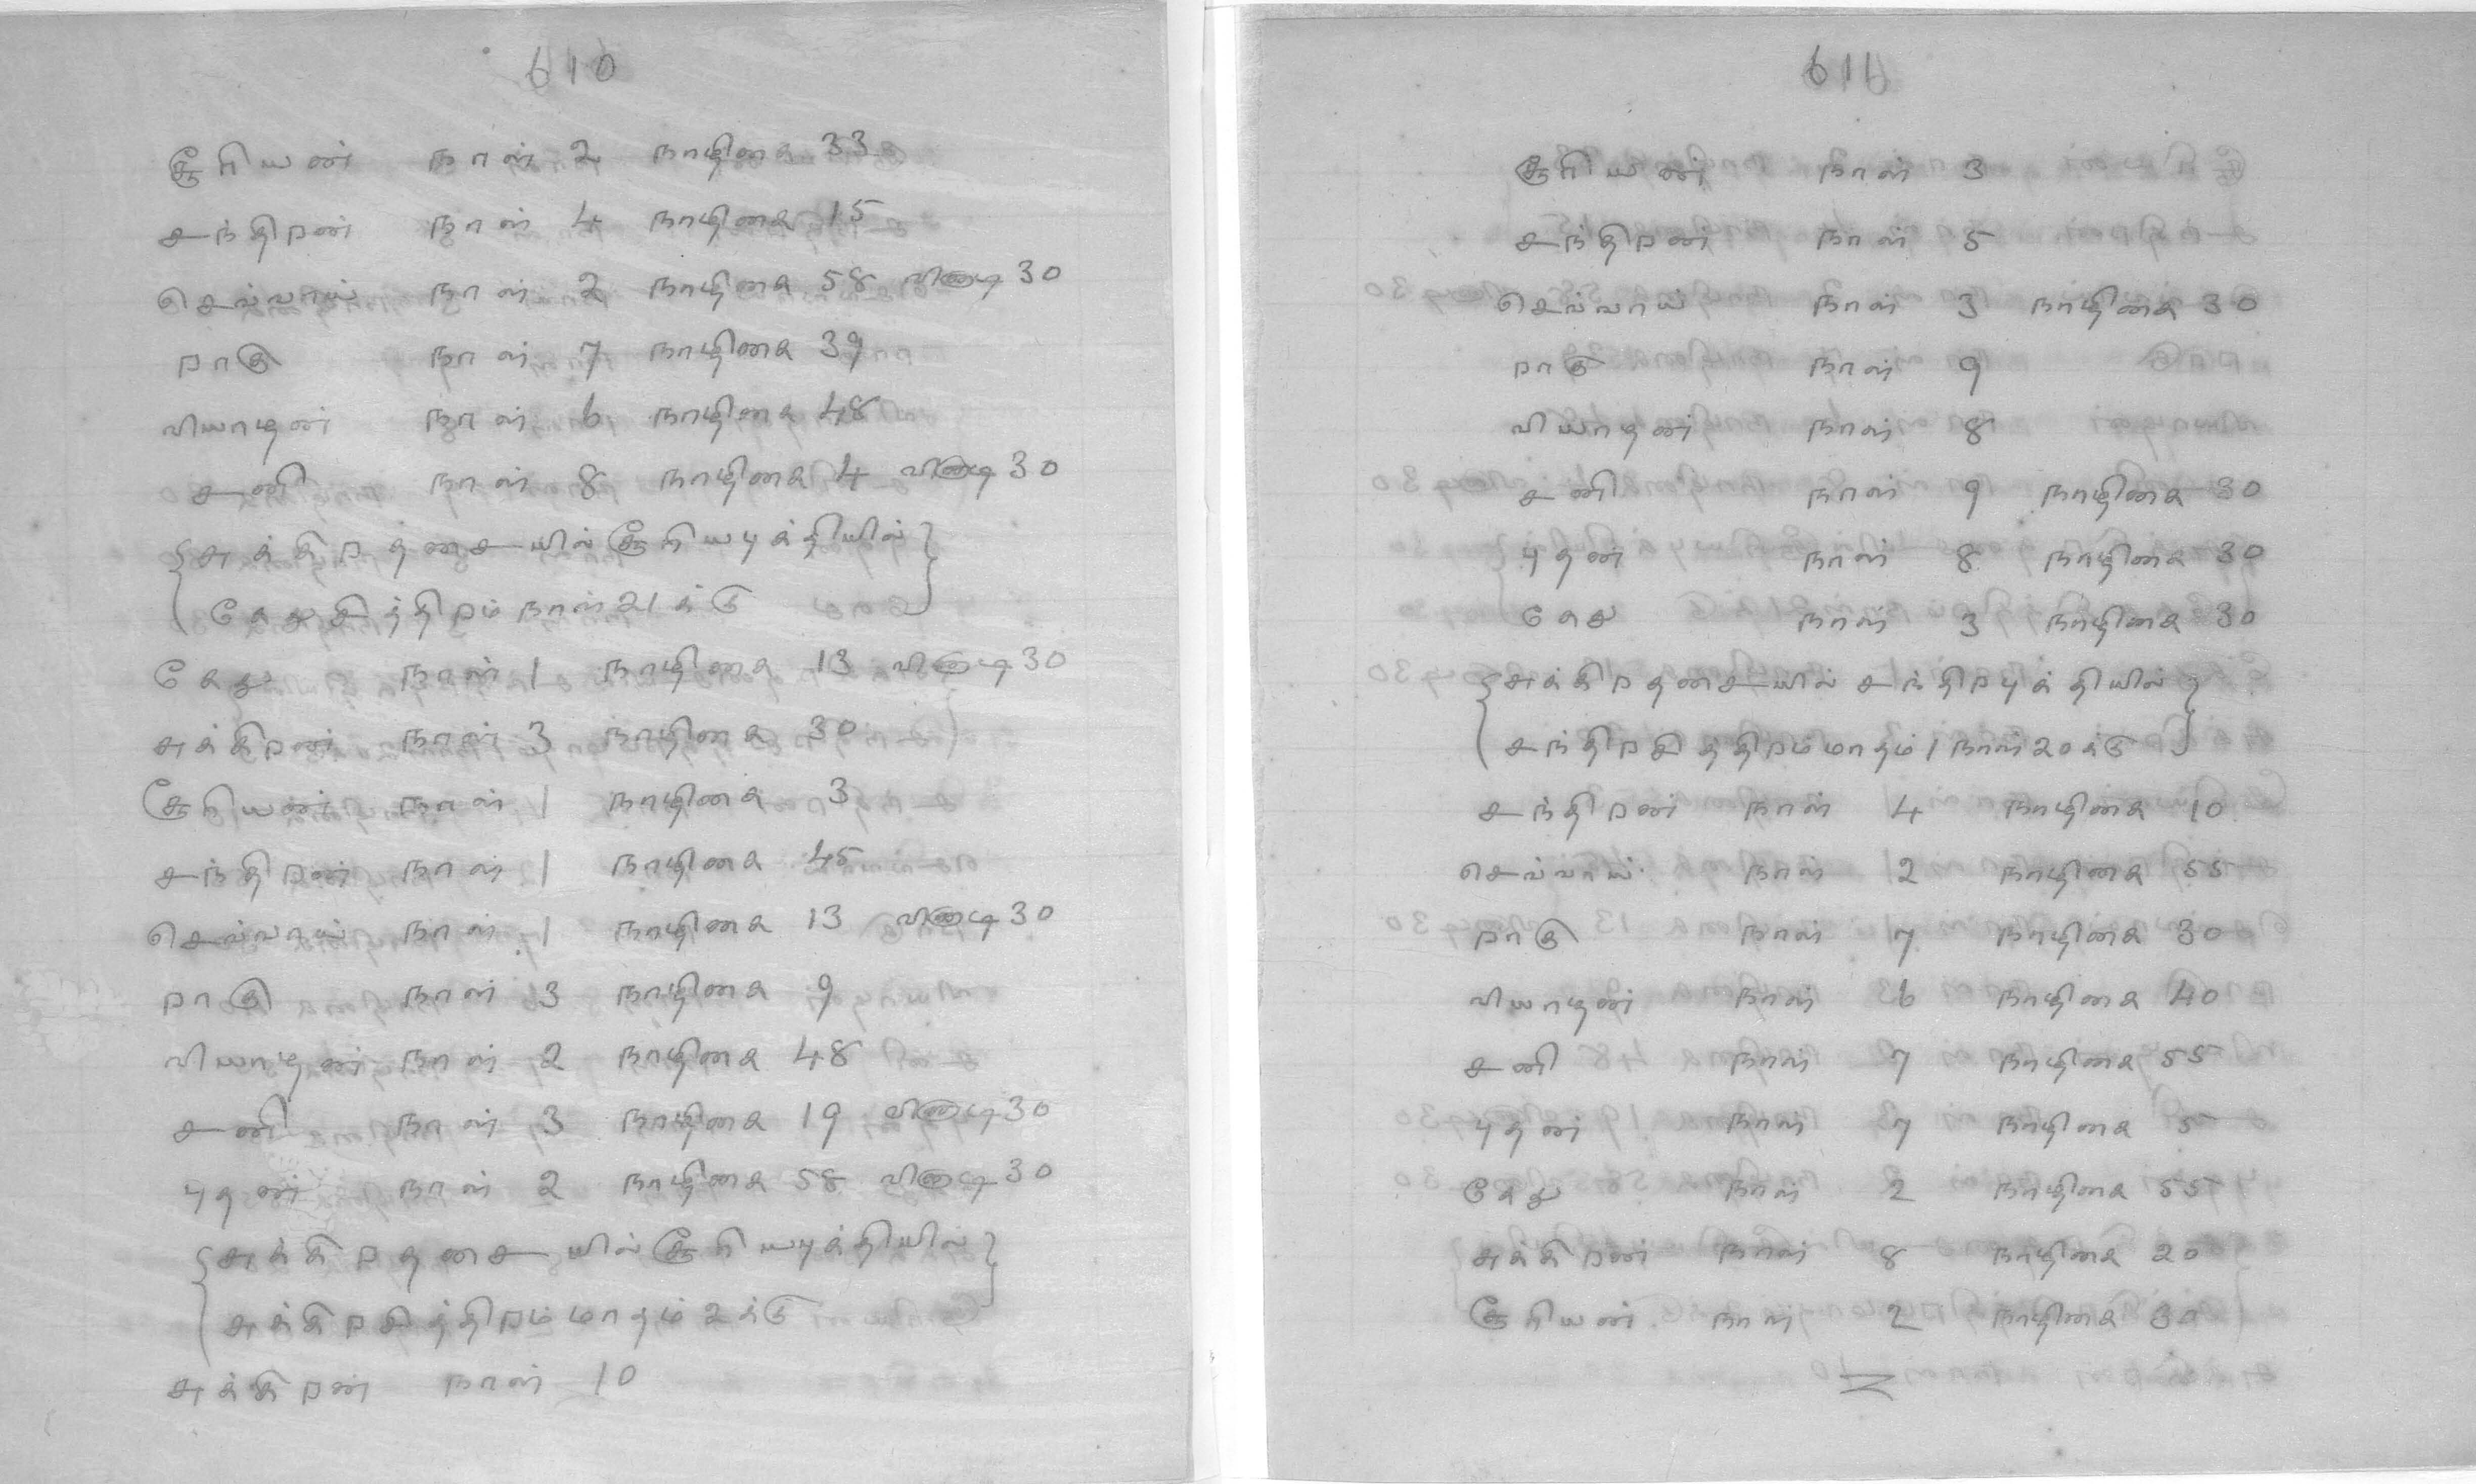 610
சூரியன் நாள் 2 நாழிகை 33
சந்திறன் நாள் 4 நாழிகை 15
செவ்வாய் நாள் 2 நாழிகை 58 வினாடி 30
றாகு நாள் 7 நாழிகை 39
வியாழன் நாள் 6 நாழிகை 48
சனி நாள் 8 நாழிகை 4 வினாடி 30
{சுக்கிறதசையில் சூரியபுக்தியில்}
கேதுசித்திறம் நாள் 21க்கு
கேது நாள் 1 நாழிகை 13 வினாடி 30
சுக்கிறன் நாள் 3 நாழிகை 30
சூரியன் நாள் 1 நாழிகை 3
சந்திறன் நாள் 1 நாழிகை 45
செவ்வாய் நாள் 1 நாழிகை 13 வினாடி 30
றாகு நாள் 3 நாழிகை 9
வியாழன் நாள் 2 நாழிகை 48
சனி நாள் 3 நாழிகை 19 வினாடி 30
புதன் நாள் 2 நாழிகை 58 வினாடி 30
{சுக்கிறதசையில் சூரியபுக்தியில்}
சுக்கிறசித்திறம் மாதம் 2க்கு
சுக்கிறன் நாள் 10
611
சூரியன் நாள் 3
சந்திறன் நாள் 5
செவ்வாய் நாள் 3 நாழிகை 30
றாகு நாள் 9
வியாழன் நாள் 8
சனி நாள் 9 நாழிகை 30
புதன் நாள் 8 நாழிகை 30
கேது நாள் 3 நாழிகை 30
{சுக்கிறதசையில் சந்திறபுக்தியில்}
சந்திறசித்திறம் மாதம் 1 நாள் 20க்கு
சந்திறன் நாள் 4 நாழிகை 10
செவ்வாய் நாள் 2 நாழிகை 55
றாகு நாள் 7 நாழிகை 30
வியாழன் நாள் 6 நாழிகை 40
சனி நாள் 7 நாழிகை 55
புதன் நாள் 7 நாழிகை 5
கேது நாள் 2 நாழிகை 55
சுக்கிறன் நாள் 8 நாழிகை 20
சூரியன் நாள் 2 நாழிகை 30